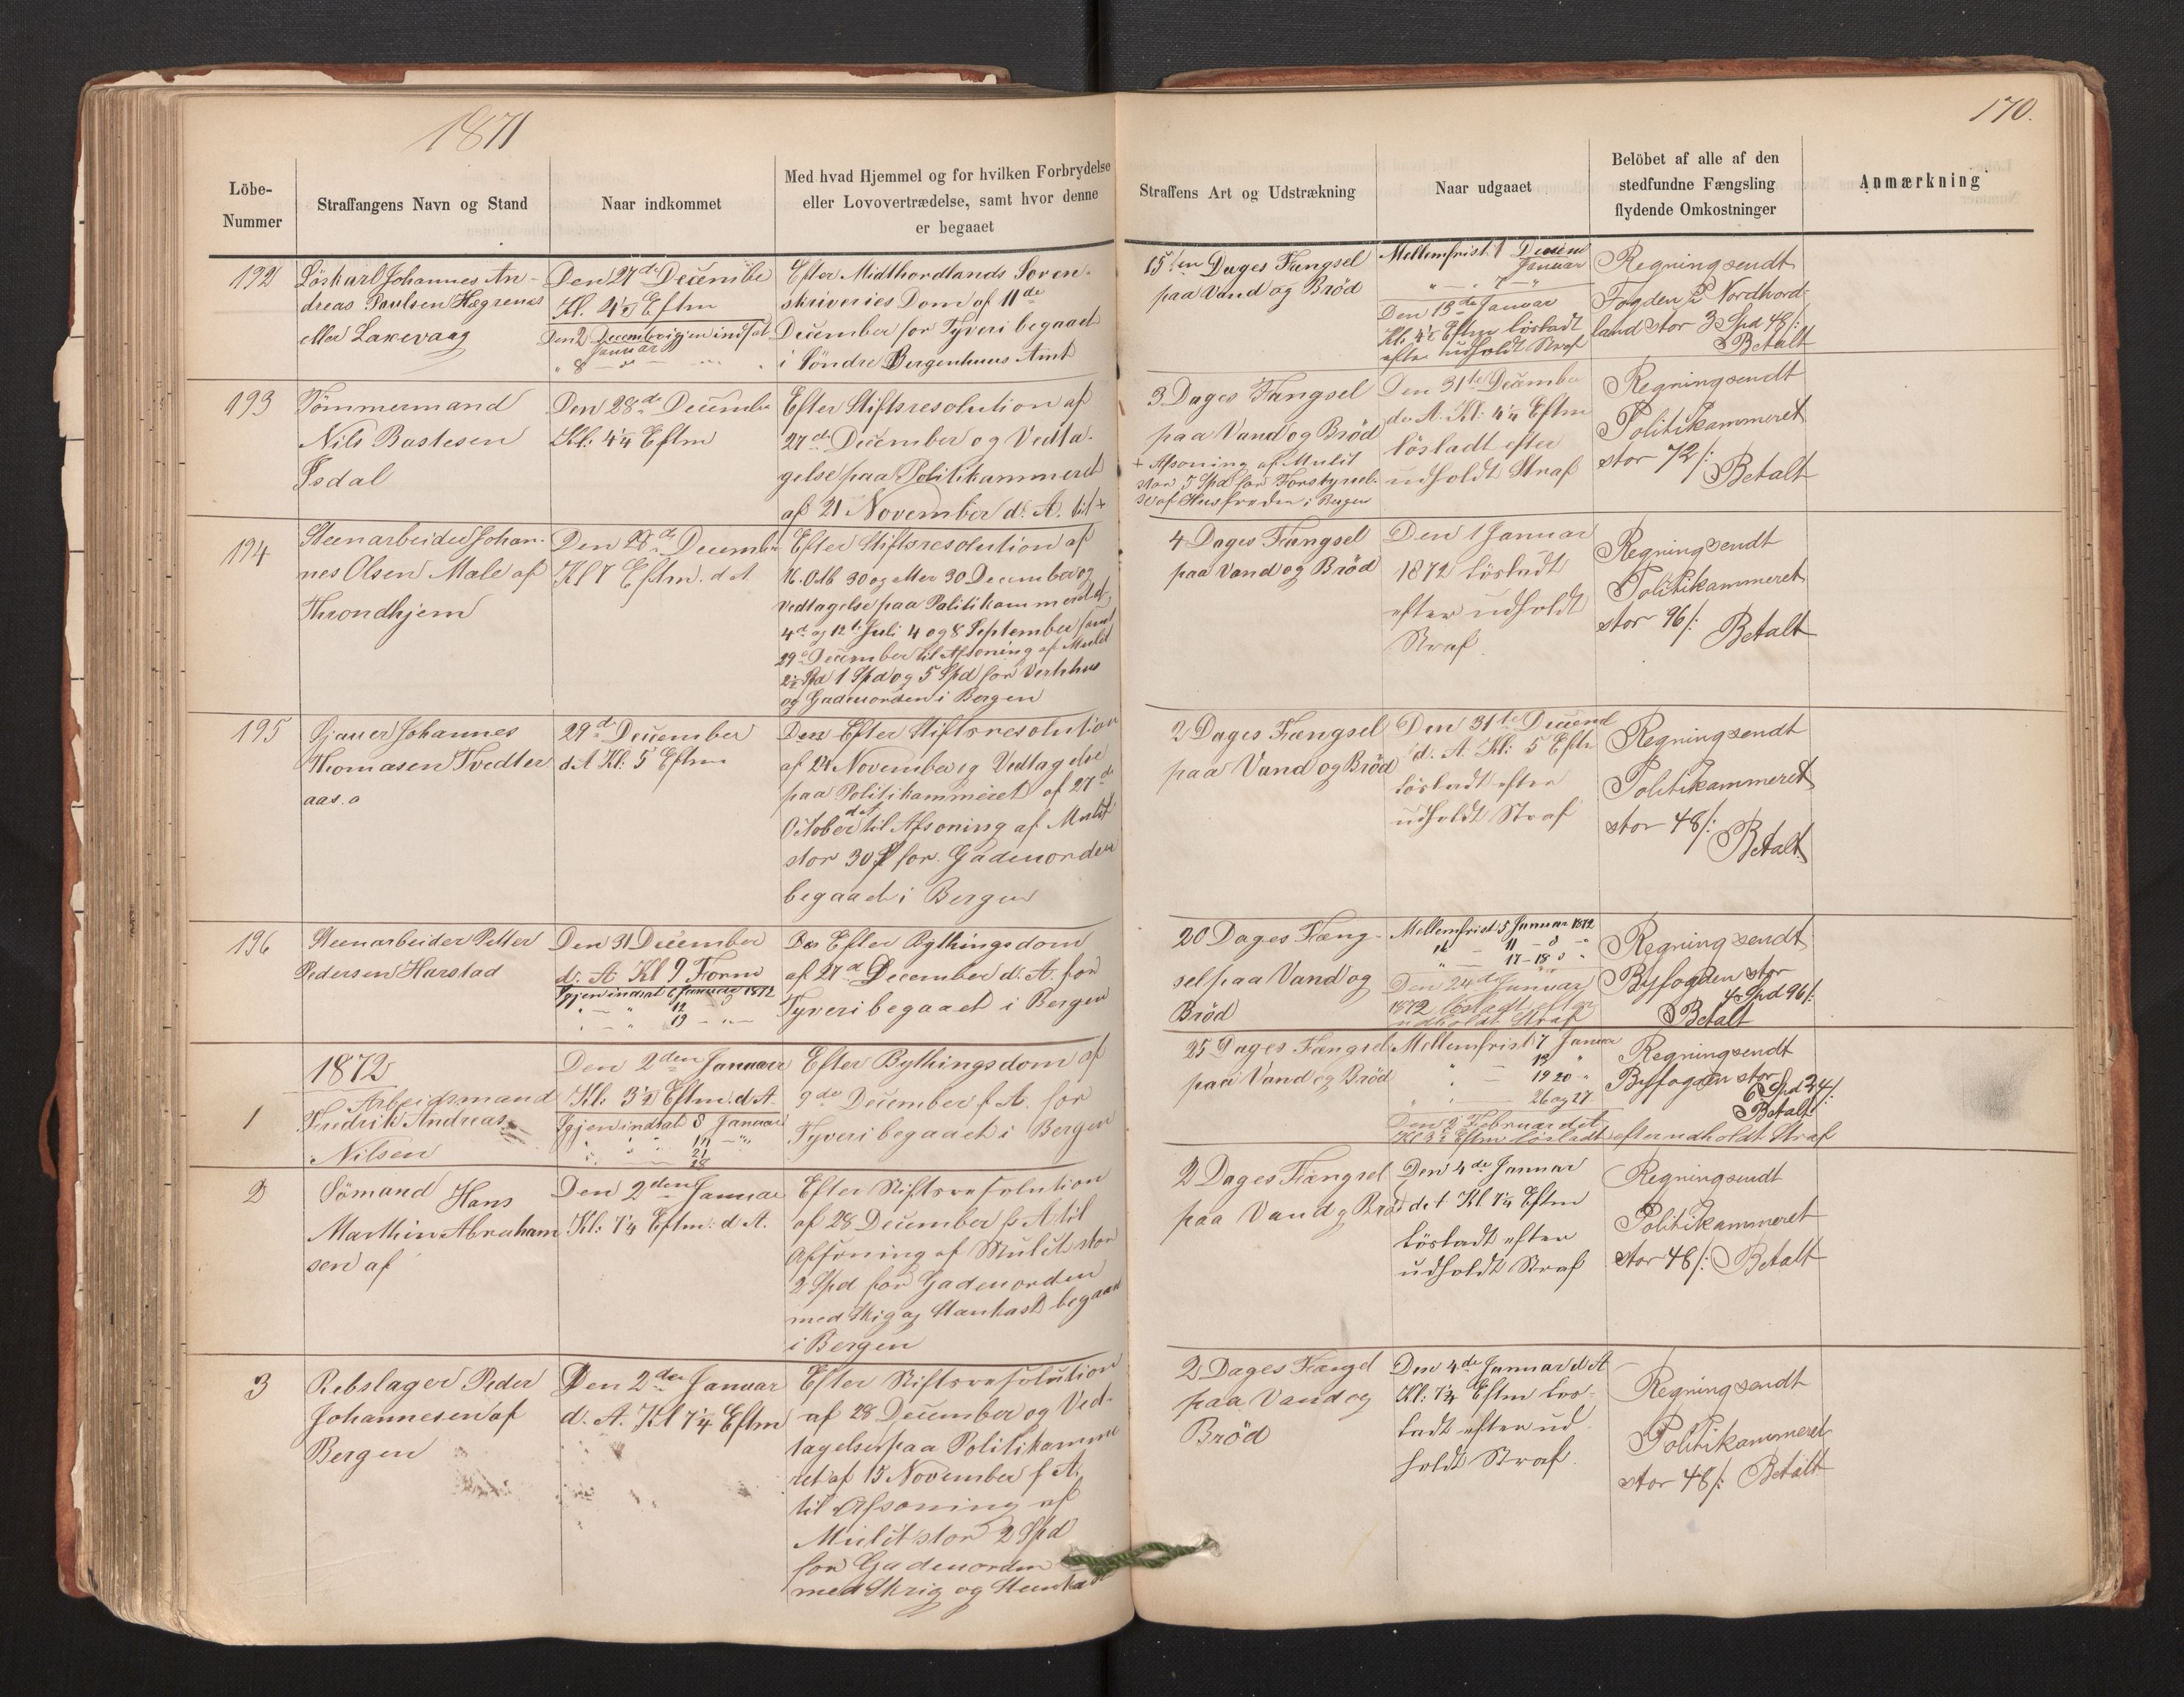 1871
170.
Löbe-
Nummer
Straffangens Navn og Stand
Naar indkommet
Med hvad Hjemmel og for hvilken Forbrydelse
eller Lovovertrædelse, samt hvor denne
er begaaet
Straffens Art og Udstrækning
Naar udgaaet
Belöbet af alle af den
stedfundne Fængsling
flydende Omkostninger
Anmærkning
192
Löskarl Johannes An-
dreas Poulsen Hægrenes
eller Lakevaag
Den 27de December
Kl. 4½ Eftm
Den 2 Decemb igjen indsat
Januar
" 8
Efter Midthordlands Soren-
skriveries Dom af 11de
December for Tyveri begaaet
i Söndre Bergenhuus Amt
15ten Dages Fængsel
paa Vand og Bröd
Mellemfrist 1 Decemb
Januar
Den 13de Januar
Kl. 4½ Eftm löstadt
efter udholdt Straf
Regning sendt
Fogden i Nordhord-
land stor 3 Spd 48/:
Betalt
193
Tömmermand
Nils Bastesen
Isdal
Den 28de Decembr
Kl: 4¼ Eftm
Efter Stiftsresolution af
27de December og Vedta-
gelse paa Politikammeret
af 21 November d: A. til +
3 Dages Fængsel
paa Vand og Bröd
+ Afsoning af Mulct
stor 5 Spd for Forstyrrel-
se af Husfreden i Bergen
Den 31te Decembe
d: A. Kl: 4¼ Eftm
löstadt efter
udholdt Straf
Regning sendt
Politikammeret
stor 72/:
Betalt
194
Steenarbeider Johan-
nes Olsen Male af
Throndhjem
Den 28de Decembr
Kl 7 Eftm. d A
Efter Stiftsresolution af
16. Oktb 30 og atter 30 December og
Vedtagelse paa Politikammeret af
4de og 12te Juli 4 og 8 September samt
29de December til Afsoning af Mulct
2½ Spd 1 Spd og 5 Spd for Vertshus
og Gadeuorden i Bergen
4 Dages Fængsel
paa Vand og Bröd
Den 1 Januar
1872 löstadt
efter udholdt
Straf.
Regning sendt
Politikammeret
stor 96/:
Betalt
195
Gjauer Johannes
Thomasen Tvedter
aas.
29de December
d: A Kl: 5 Eftm
Den Efter Stiftsresolution
af 24 November og Vedtagelse
paa Politikammeret af 27de
October d A til Afsoning af Mulct
stor 30 ß for Gadeuorden
begaaet i Bergen
2 Dages Fængsel
paa Vand og Bröd
Den 31te Decemb
d: A. Kl: 5 Eftm
löstadt efter
udholdt Straf
Regning sendt
Politikammeret
stor 48/:
Betalt
196
Steenarbeider Petter
Pedersen Harstad
Den 31 December
d: A: Kl 9 Form
Igjen indsat 6 Januar 1872
" — " 12
" — " 19 — " —
Efter Bythingsdom
af 27de December d: A. for
Tyveri begaaet i Bergen
20 Dages Fæng-
sel paa Vand og
Bröd
Mellemfrist: 5 Januar 1872
" — 11 —
" — 17-18
Den 24de Januar
1872 löstadt efter
udholdt Straf
Regning sendt
Byfogden stor
4 Spd 96/:
Betalt
1872
1
Arbeidsmand
Fredrik Andreas
Nilsen
Den 2den Januar
Kl: 3½ Eftm: d A.
Igjen indsat 8 Januar
21
28
Efter Bythingsdom af
9de December f. A. for
Tyveri begaaet i Bergen
25 Dages Fængsel
paa Vand og Bröd
Mellemfrist 7 Januar
13 "
19 20 "
26 og 27
Den 2 Februar d A
Kl 3½ Eftm löstadt efter udholdt Straf
Regning sendt
Byfogden stor
6 Spd 24/:
Betalt
2
Sömand Hans
Marthin Abraham
sen af
Den 2den Januar
Kl: 7¼ Eftm: d A.
Efter Stiftsresolution
af 28 December f: A til
Afsoning af Mulct stor
2 Spd for Gadeuorden
med Skrig og Stenkast begaaet
i Bergen
2 Dages Fængsel
paa Vand og Bröd
Den 4de Januar
d: A Kl. 7¼ Eftm
löstadt efter
udholdt Straf
Regning sendt
Politikammeret
stor 48/: Betalt
3
Rebslager Peder
Johannesen af
Bergen
Den 2den Januar
d: A. Kl 7¼ Eftm
Efter Stiftsresolution
af 28 December og Ved-
tagelser paa Politikamme
ret af 15 November f A.
til Afsoning af
Mulct stor 2 Spd
for Gadeuorden
med Skrig og Stenkast
2 Dages Fængsel
paa Vand og
Bröd
Den 4de Januar d A
Kl: 7¼ Eftm lös-
ladt efter ud
holdt Straf.
Regning sendt
Politikammeret
stor 48/: Betalt